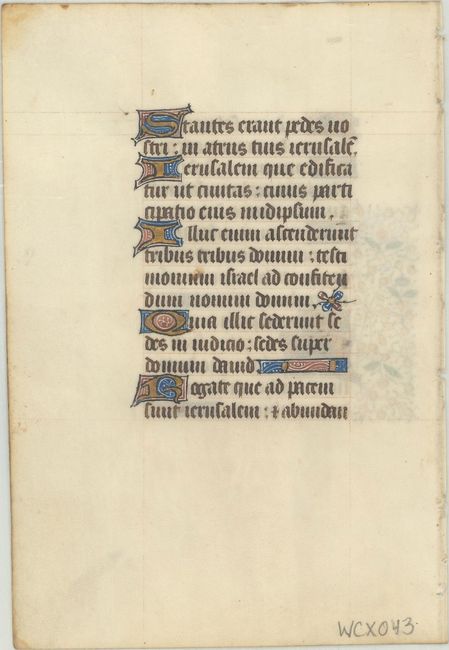 Stantes erant pedes no
stri : in atriis tuis ierusalē.
Ierusalem que edifica
tur ut civitas : cuius parti
cipatio eius inidipsum.
Illuc enim ascenderunt
tribus tribus domini : testi
monium israel ad confiten
dum nomini domini.
Quia illic sederunt se
des in iudicio : sedes super
domum david.
Rogate que ad pacem
sunt ierusalem : & abundan
WCX043